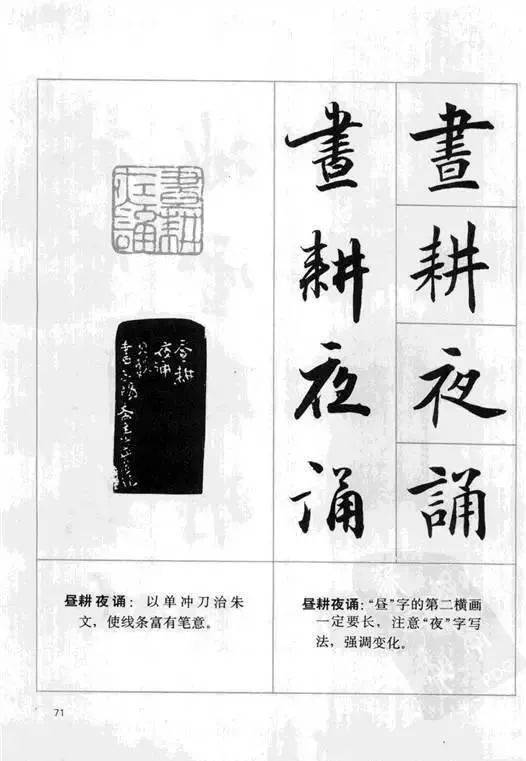 晝耕
夜誦
晝耕夜誦
晝耕夜誦
昼耕
夜诵
昼耕夜诵：以单冲刀治朱
文，使线条富有笔意。
昼耕夜诵：“昼”字的第二横画
一定要长，注意“夜”字写
法，强调变化。
71